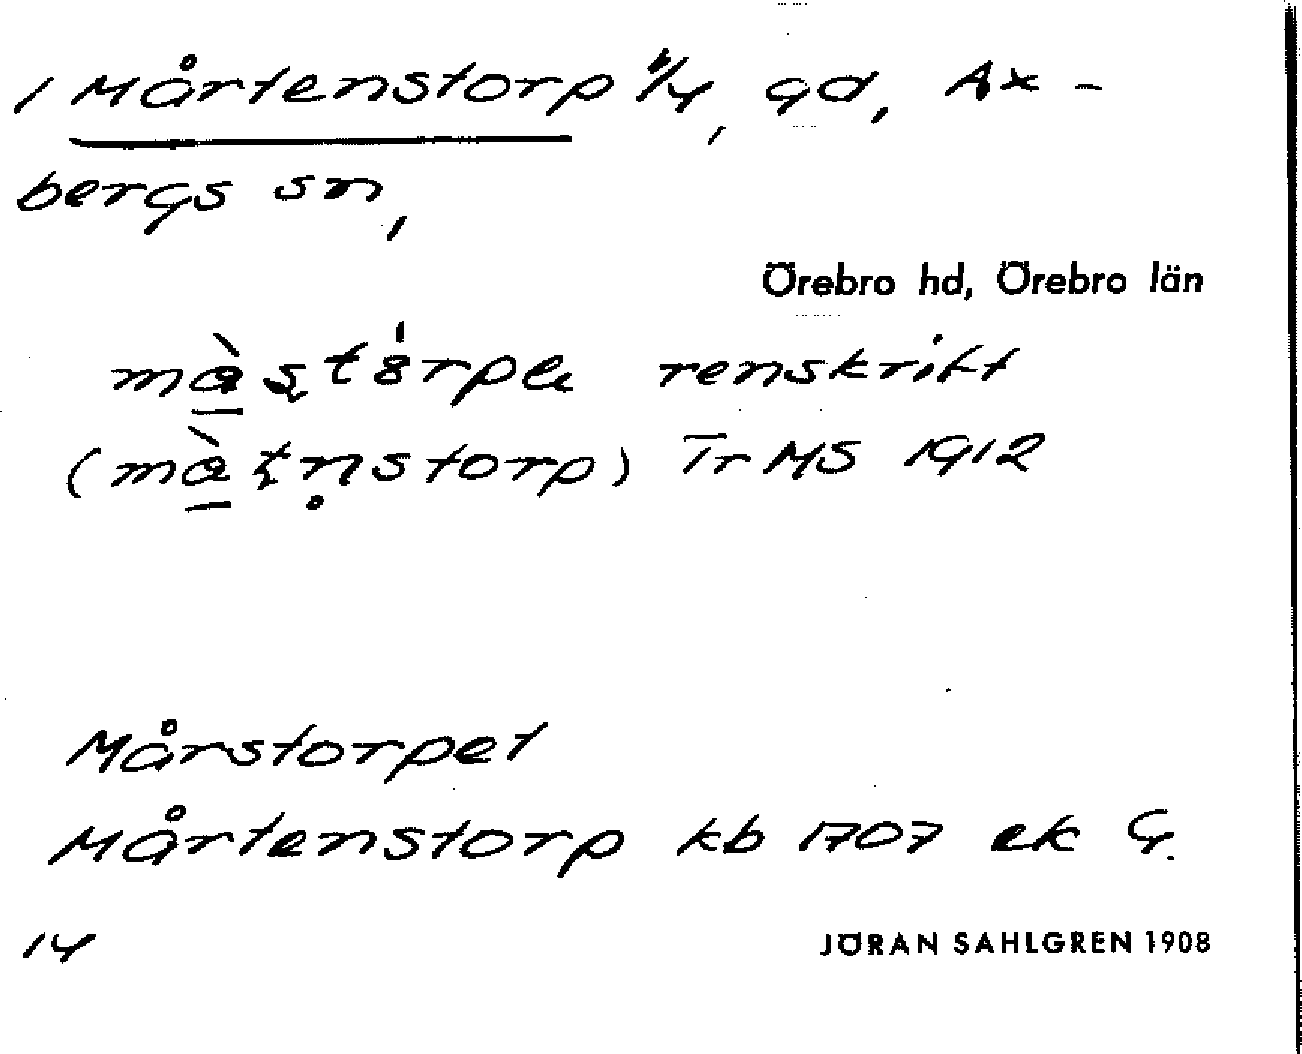 1 Mårtenstorp 1/4, gd, Ax-
bergs sn,
Örebro hd, Örebro län
renskrift
TrMS 1912
Mårstorpet
Mårtenstorp kb 1707 ek G.
14
JÖRAN SAHLGREN 1908